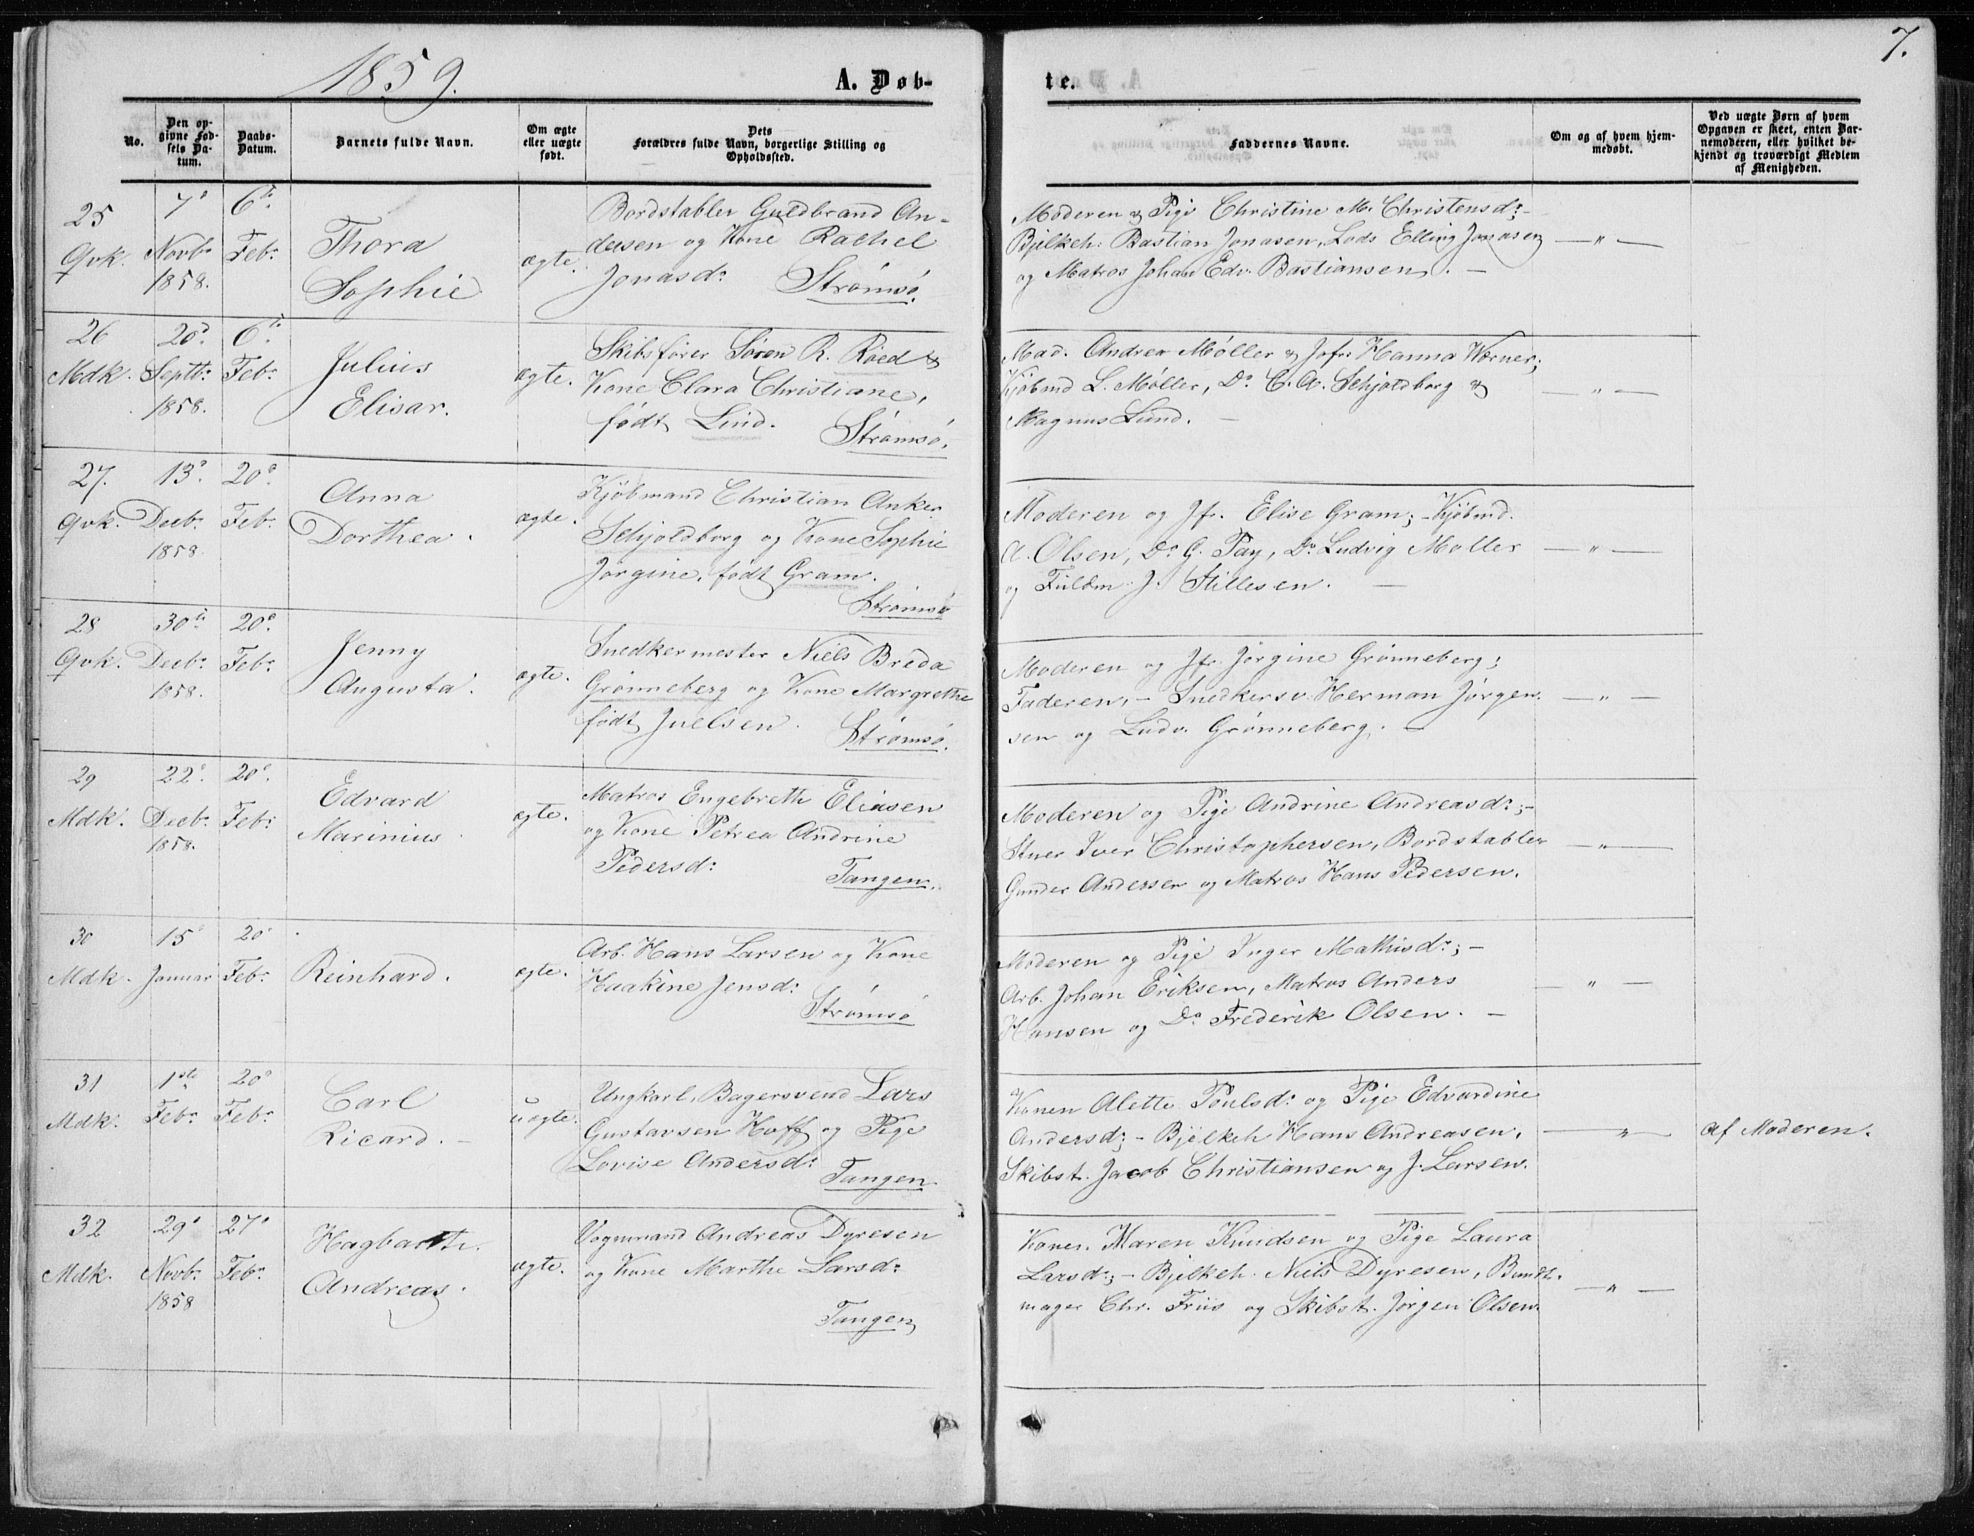 1859.
A. Døb-
te.
7.
No.
Den op-
givne Fød-
sels Da-
tum.
Daabs-
Datum.
Barnets fulde Navn.
Om ægte
eller uægte
født.
Dets
Forældres fulde Navn, borgerlige Stilling og
Opholdssted.
Faddernes Navne.
Om og af hvem hjem-
medøbt.
Ved uægte Børn af hvem
Opgaven er skeet, enten Bar-
nemoderen, eller hvilket be-
kjendt og troværdigt Medlem
af Menigheden.
25
Qvk.
7de
Novbr
1858.
6te
Febr
Thora
Sophie
ægte.
Bordstabler Guldbrand An-
dersen og Kone Rachel
Jonasdr
Strømsø.
Moderen & Pige Christine M. Christensdr; -
Bjelkeh: Bastian Jonasen, Lods Elling Jonasen
og Matros Johan Edv. Bastiansen. -
— " —
26
Mdk.
20de
Septbr
1858.
6te
Febr
Julius
Elisar.
ægte.
Skibsfører Søren R. Röed &
Kone Clara Christiane,
født Lind.
Strømsø.
Mad. Andrea Møller & Jofr. Hanna Werner;
Kjöbmd L. Møller, Do C. A. Schjoldborg &
Magnus Lund. -
— " —
27.
Qvk.
13de
Decbr
1858.
20de
Febr
Anna
Dorthea.
ægte.
Kjöbmand Christian Anker
Schjoldborg og Kone Sophie
Jørgine, født Gram.
Strømsø
Moderen og Jfr. Elise Gram; Kjöbmd.
A. Olsen, Do G. Pay, Do Ludvig Møller
og Fuldm. J. Stillesen. —
— " —
28
Qvk.
30te
Decbr
1858.
20de
Febr
Jenny
Augusta.
ægte.
Snedkermester Niels Breda
Grønneberg og Kone Margrethe
født Juelsen.
Strømsø.
Moderen og Jfr. Jørgine Grønneberg;
Faderen, - Snedkersv. Herman Jørgen-
sen og Ludv. Grønneberg. -
— " —
29
Mdk.
22de
Decbr
1858.
20de
Febr
Edvard
Marinius.
ægte.
Matros Engebreth Eliasen
og Kone Petrea Andrine
Pedersdr
Tangen.
Moderen og Pige Andrine Andreasdr; -
Stuer Iver Christophersen, Bordstabler
Gunder Andersen og Matros Hans Pedersen.
— " —
30
Mdk.
15de
Januar
20de
Febr
Reinhard.
ægte.
Arb. Hans Larsen og Kone
Haakine Jensdr
Strømsø
Moderen og Pige Inger Mathisdr; -
Arb. Johan Eriksen, Matros Anders
Hansen og Do Frederik Olsen. -
— " —
31
Mdk.
1ste
Febr
20de
Febr
Carl
Ricard. -
uægte.
Ungkarl, Bagersvend Lars
Gustavsen Hoff og Pige
Lovise Andersdr
Tangen.
Konen Alette Poulsdr og Pige Edvardine
Andersdr; - Bjelkeh Hans Andreasen,
Skibst. Jacob Christiansen og J. Larsen.
— " —
Af Moderen.
32
Mdk.
29de
Novbr
1858
27de
Febr
Hagbarth
Andreas.
ægte.
Vognmand Andreas Dyresen
og Kone Marthe Larsdr
Tangen
Konen Maren Knudsen og Pige Laura
Larsdr; - Bjelkeh. Niels Dyresen, Bundt-
mager Chr. Friis og Skibst. Jørgen Olsen.
— " —